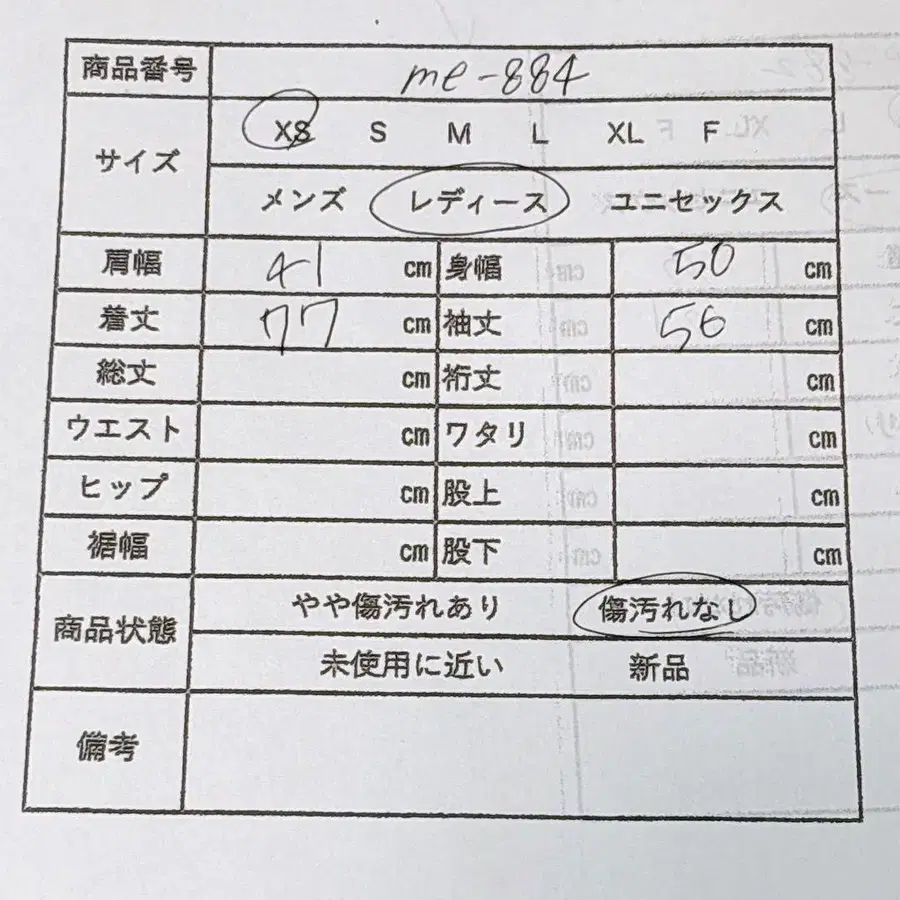 商品番号 me-884
サイズ XS S M L XL F
メンズ レディース ユニセックス
肩幅 41 cm 身幅 50 cm
着丈 77 cm 袖丈 56 cm
総丈 cm 裄丈 cm
ウエスト cm ワタリ cm
ヒップ cm 股上 cm
裾幅 cm 股下 cm
商品状態 やや傷汚れあり 傷汚れなし
未使用に近い 新品
備考